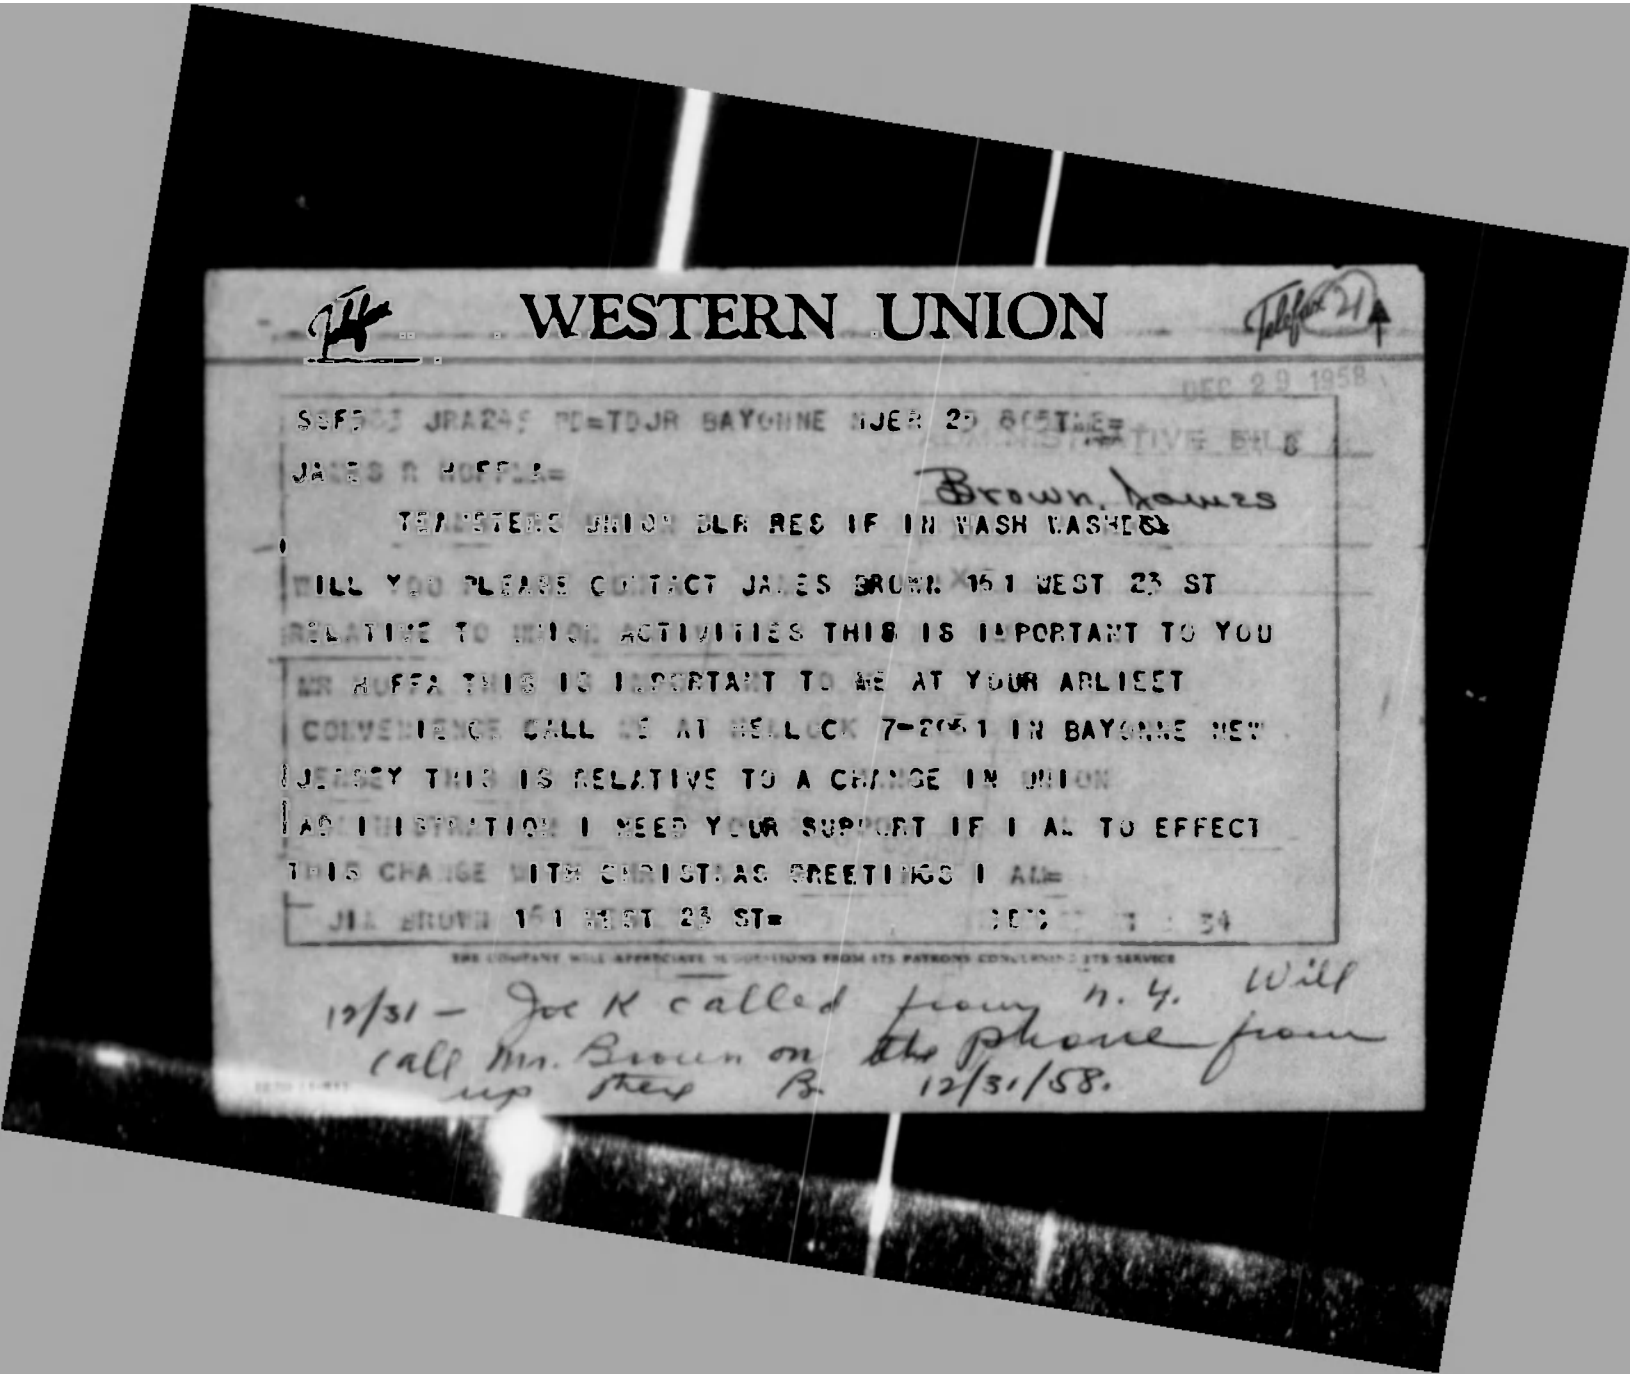 Telefax WESTERN UNION Telefax 21
DEC 29 1958
JRA245 PD=TDJR BAYONNE NJER 29
ADMINISTRATIVE FILE
JAMES R HOFFLA=
Brown, James
TEAMSTERS UNION DLR RES IF IN WASH WASHDC=
WILL YOU PLEASE CONTACT JAMES BROWN 151 WEST 23 ST
RELATIVE TO UNION ACTIVITIES THIS IS IMPORTANT TO YOU
MR HUFFA THIS IS IMPORTANT TO ME AT YOUR ARLIEST
CONVENIENCE CALL ME AT HELLOCK 7-2051 IN BAYONNE NEW
JERSEY THIS IS RELATIVE TO A CHANGE IN UNION
ADMINISTRATION I NEED YOUR SUPPORT IF I AM TO EFFECT
THIS CHANGE WITH CHRISTMAS GREETINGS I AM=
JIM BROWN 151 WEST 23 ST=
THE COMPANY WILL APPRECIATE SUGGESTIONS FROM ITS PATRONS CONCERNING ITS SERVICE
12/31 - Joe K called from N.Y. Will
call Mr. Brown on the phone from
up there B. 12/31/58.